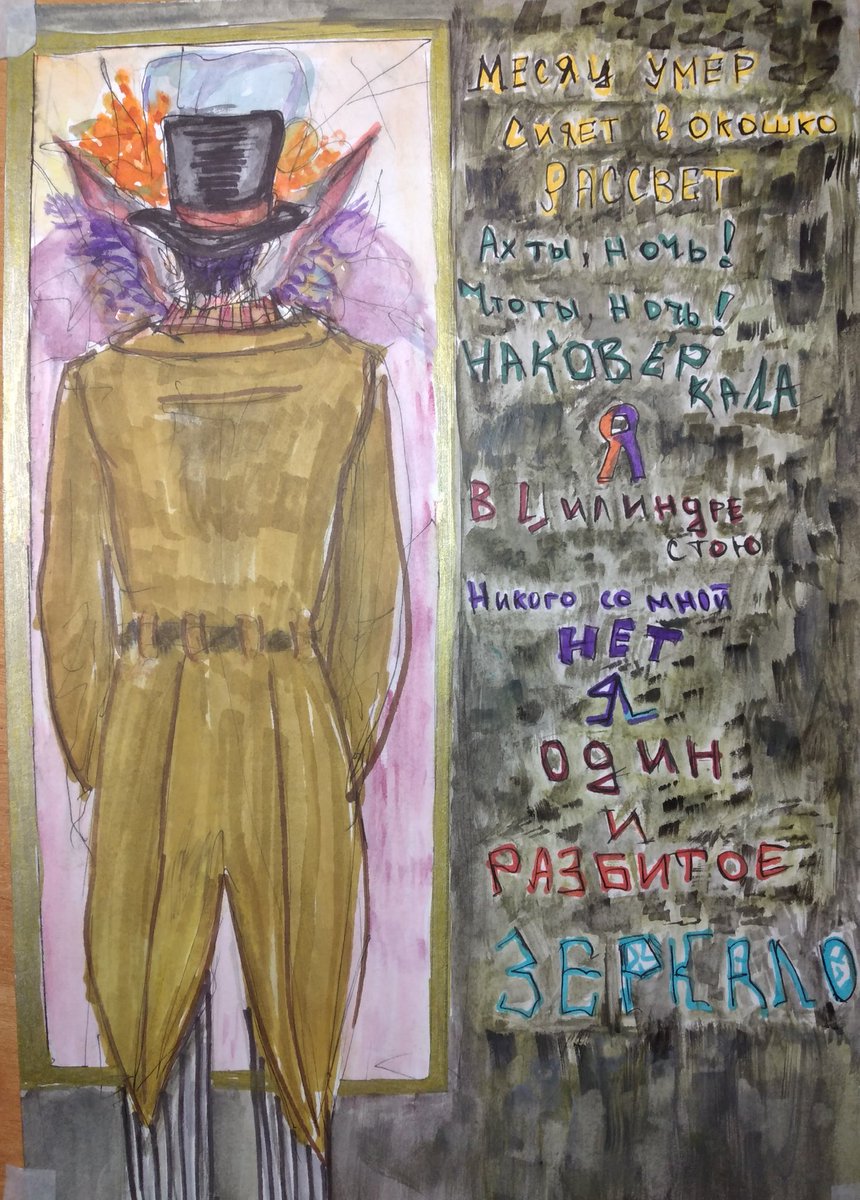 МЕСЯЦ УМЕР
СИЯЕТ В ОКОШКО
РАССВЕТ
АХ ТЫ, НОЧЬ!
ЧТО ТЫ, НОЧЬ!
НАКОВЕР
КАЛА
Я
В ЦИЛИНДРЕ
СТОЮ
НИКОГО СО МНОЙ
НЕТ
Я
ОДИН
И
РАЗБИТОЕ
ЗЕРКАЛО